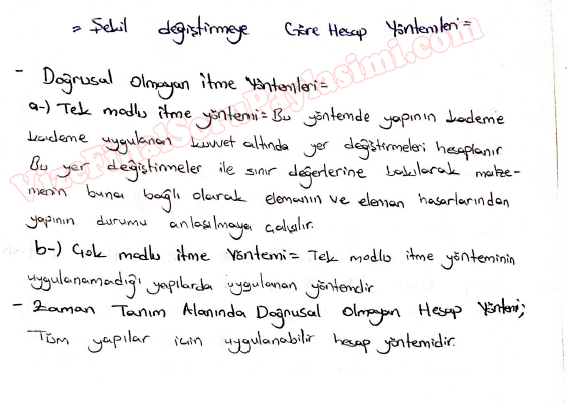 = Şekil değiştirmeye Göre Hesap Yöntemleri =
- Doğrusal Olmayan itme Yöntemleri =
a-) Tek modlu itme yöntemi = Bu yöntemde yapının kademe
kademe uygulanan kuvvet altında yer değiştirmeleri hesaplanır
Bu yer değiştirmeler ile sınır değerlerine bakılarak malze-
menin buna bağlı olarak elemanın ve eleman hasarlarından
yapının durumu anlaşılmaya çalışılır.
b-) Çok modlu itme Yöntemi = Tek modlu itme yönteminin
uygulanamadığı yapılarda uygulanan yöntemdir
- Zaman Tanım Alanında Doğrusal Olmayan Hesap Yöntemi;
Tüm yapılar icin uygulanabilir hesap yöntemidir.
VizeFinalSoruPaylasimi.com